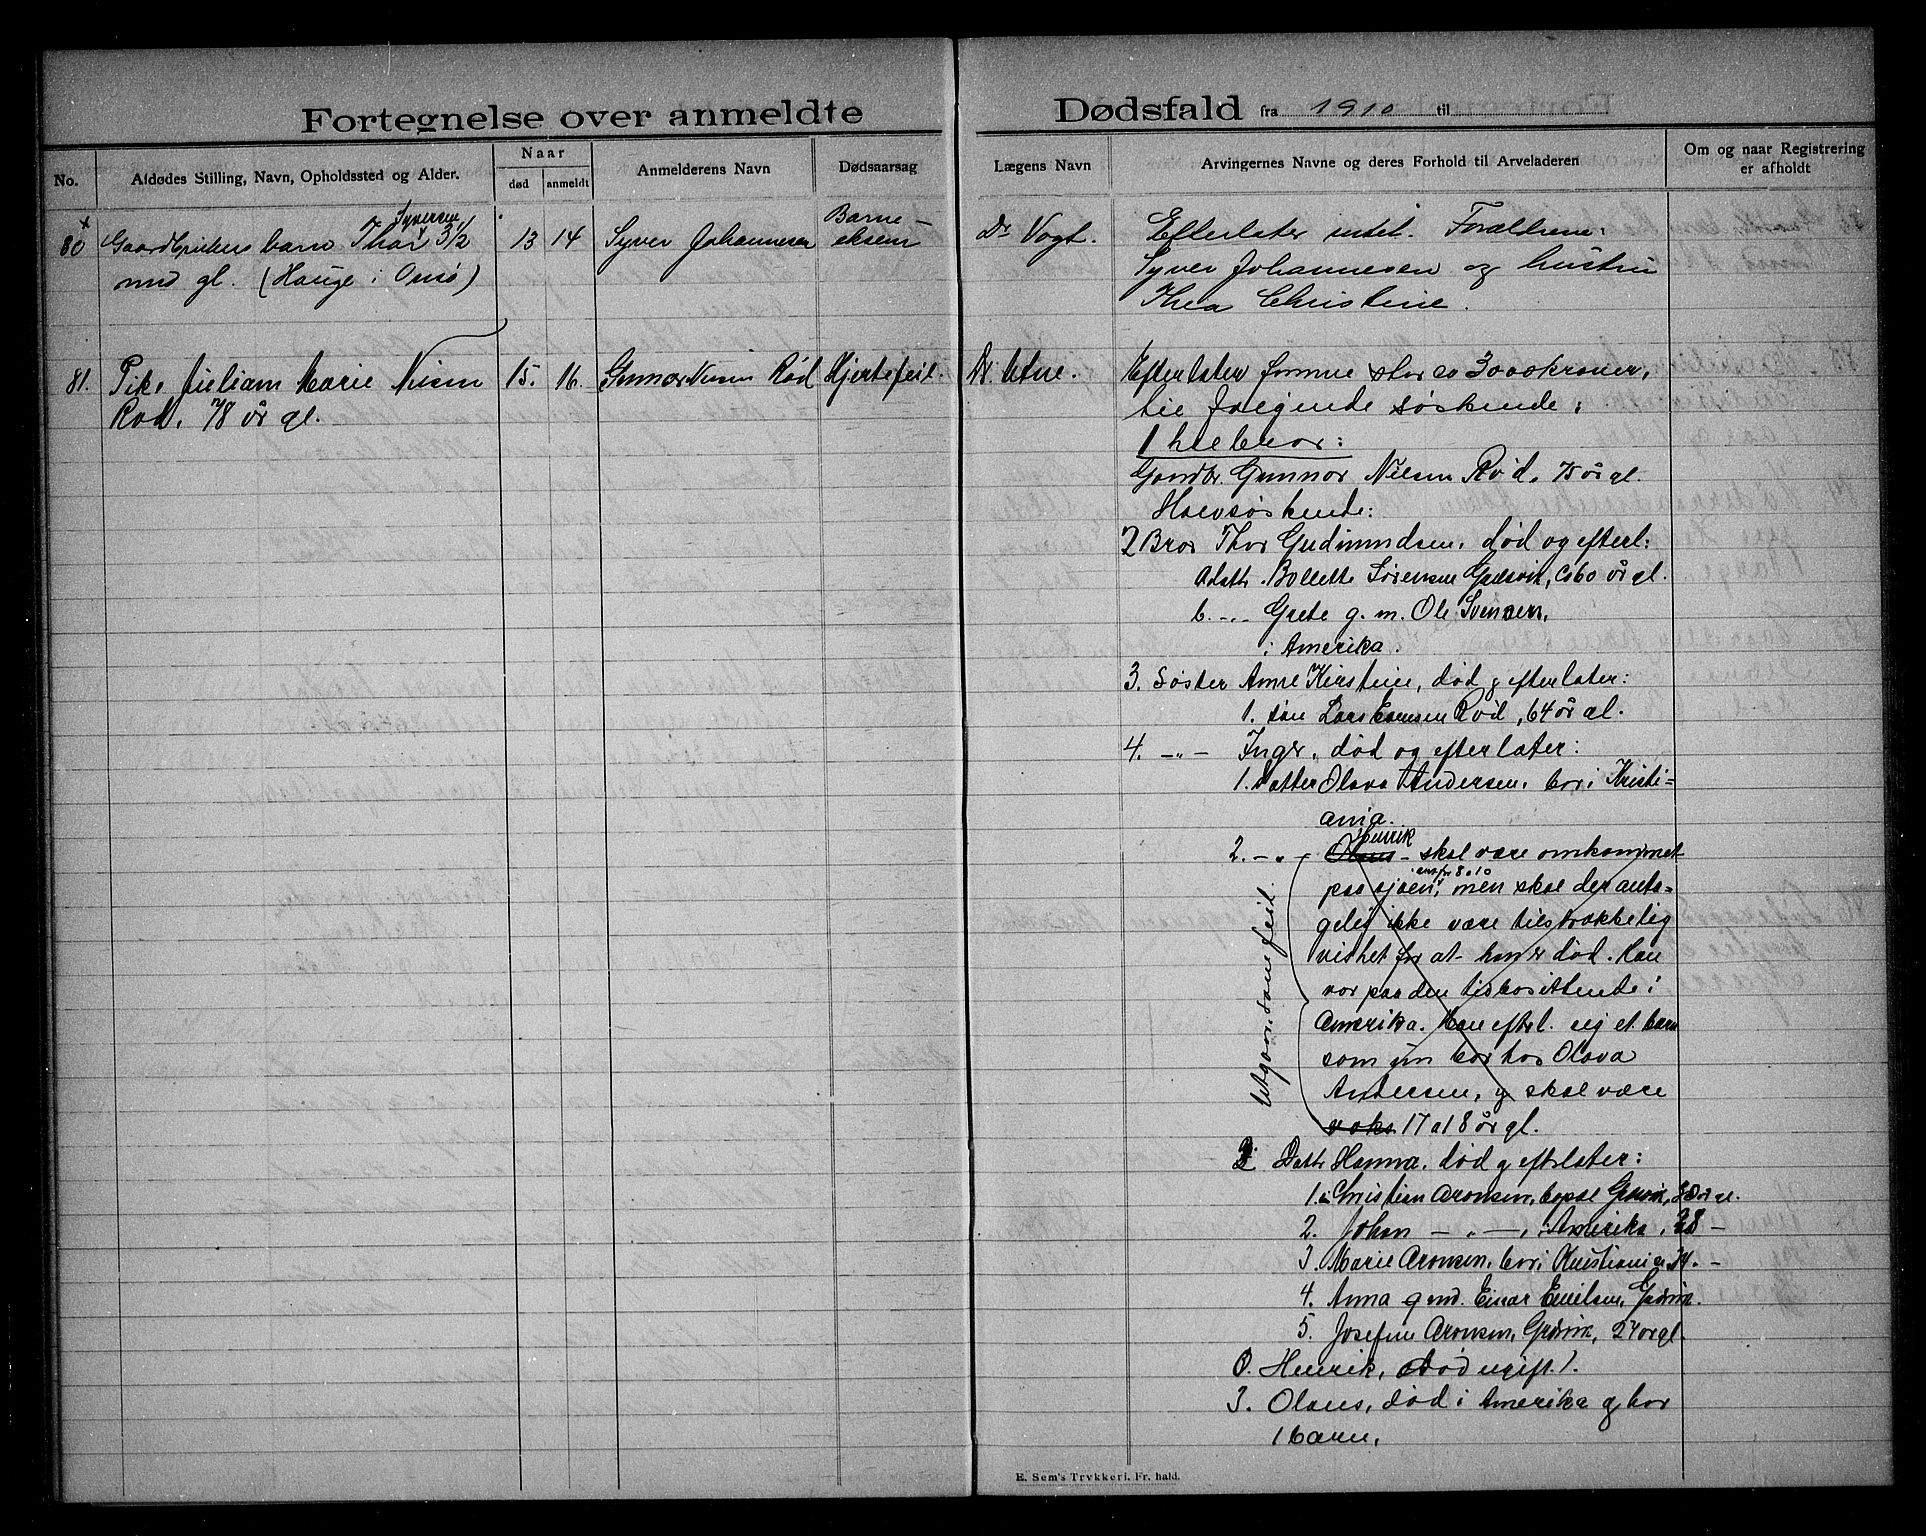 Fortegnelse over anmeldte Dødsfald fra 1910 til
No.
Afdødes Stilling, Navn, Opholdssted og Alder.
Naar
død
anmeldt
Anmelderens Navn
Dødsaarsag
Lægens Navn
Arvingernes Navne og deres Forhold til Arveladeren
Om og naar Registrering er afholdt
x
80
Syversen
Gaardbrukers barn Thor 3 1/2
mnd gl. (Hauge i Onsø)
13
14
Syver Johannesen
Barne-
eksem
Dr Vogt.
Efterlater intet. Forældrene:
Syver Johannesen og hustru
Thea Christine.
81.
Pike Juliam Marie Nilsen
Rød, 78 år gl.
15.
16.
Gunnar Nilsen Rød
Hjertefeil.
Dr
Efterlater formue stor ca 3000 kroner,
til følgende søskende:
1 helbror:
Gaardbr. Gunnar Nilsen Rød, 75 år gl.
Halvsøskende:
2 Bror Thor Gudmundsen, død og efterl:
a datt. Bollette Sørensen, ca 60 år gl.
b. -"- Grete g. m. Ole Svensen,
i Amerika.
3. Søster Anne Kirstine, død g efterlater:
1. søn Lars Rød, 64 år gl.
4. -"- Inger, død og efterlater:
1. Datter Olava Andersen, bor i Kristi-
ania.
Henrik
2. -"- Olaus - skal være omkommet
paa sjøen, men skal der anta-
gelig ikke være tilstrækkelig
vishet for at han er død. Han
var paa den tid bosittende i
Amerika. Han efterl. sig et barn
som bor hos Olava
Andersen, g skal være
voks 17 a 18 år gl.
Utgaar, som feil.
3 Datt Hanna, død g efterlater:
1. Christian Aronsen, år gl.
2. Johan -"-, i Amerika, 28 -
3. Marie Aronsen, bor i Kristiania -
4. Anna g m. Einar Emilsen,
5. Josefine Aronsen, 24 år gl.
Henrik, død ugift.
3. Olaus, død i Amerika g har
1 barn.
E. Sem's Trykkeri. Fr. hald.